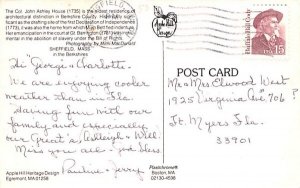 The Col. John Ashley House (1735) is the oldest example of
architectural distinction in Berkshire County. Historically
as the drafting site of the first Declaration of Independence
(1773), it was also the home from which
Her emancipation in the court of Gt. Barrington (1781) was
mental in the abolition of slavery under the Bill of Rights.
Photography by Mark MacDonald
SHEFFIELD, MASS
in the Berkshires
Hi George & Charlotte,
We are enjoying cooler
weather than in Fla.
Having fun with our
family and especially
our Great's, Ashleigh & Will.
Miss you all. God Bless
Pauline & Jerry
Apple Hill Heritage Design
Egremont, MA 01258
Plastichrome®
Boston, MA
02130-4536
Buffalo Bill Cody
USA
15
POST CARD
Mr & Mrs Elwood West
1925 Virginia Ave 706
Ft. Myers Fla.
33901